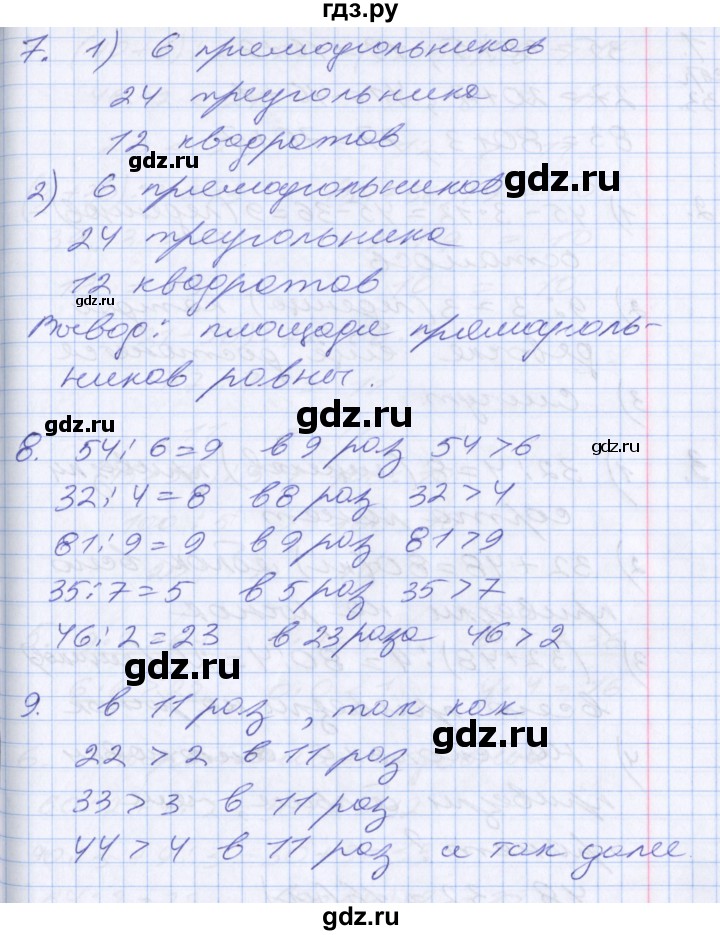 гдз.ру
7. 1) 6 прямоугольников
24 треугольника
12 квадратов
gdz.ru
2) 6 прямоугольников
gdz.ru
24 треугольника
12 квадратов
gdz.ru
Вывод: площади прямоуголь-
ников равны.
gdz.ru
gdz.ru
8. 54:6=9 в 9 раз 54>6
gdz.ru
32:4=8 в 8 раз 32>4
81:9=9 в 9 раз 81>9
gdz.ru
35:7=5 в 5 раз 35>7
46:2=23 в 23 раза 46>2
gdz.ru
9. в 11 раз, так как
gdz.ru
22>2 в 11 раз
33>3 в 11 раз
44>4 в 11 раз и так далее.
gdz.ru